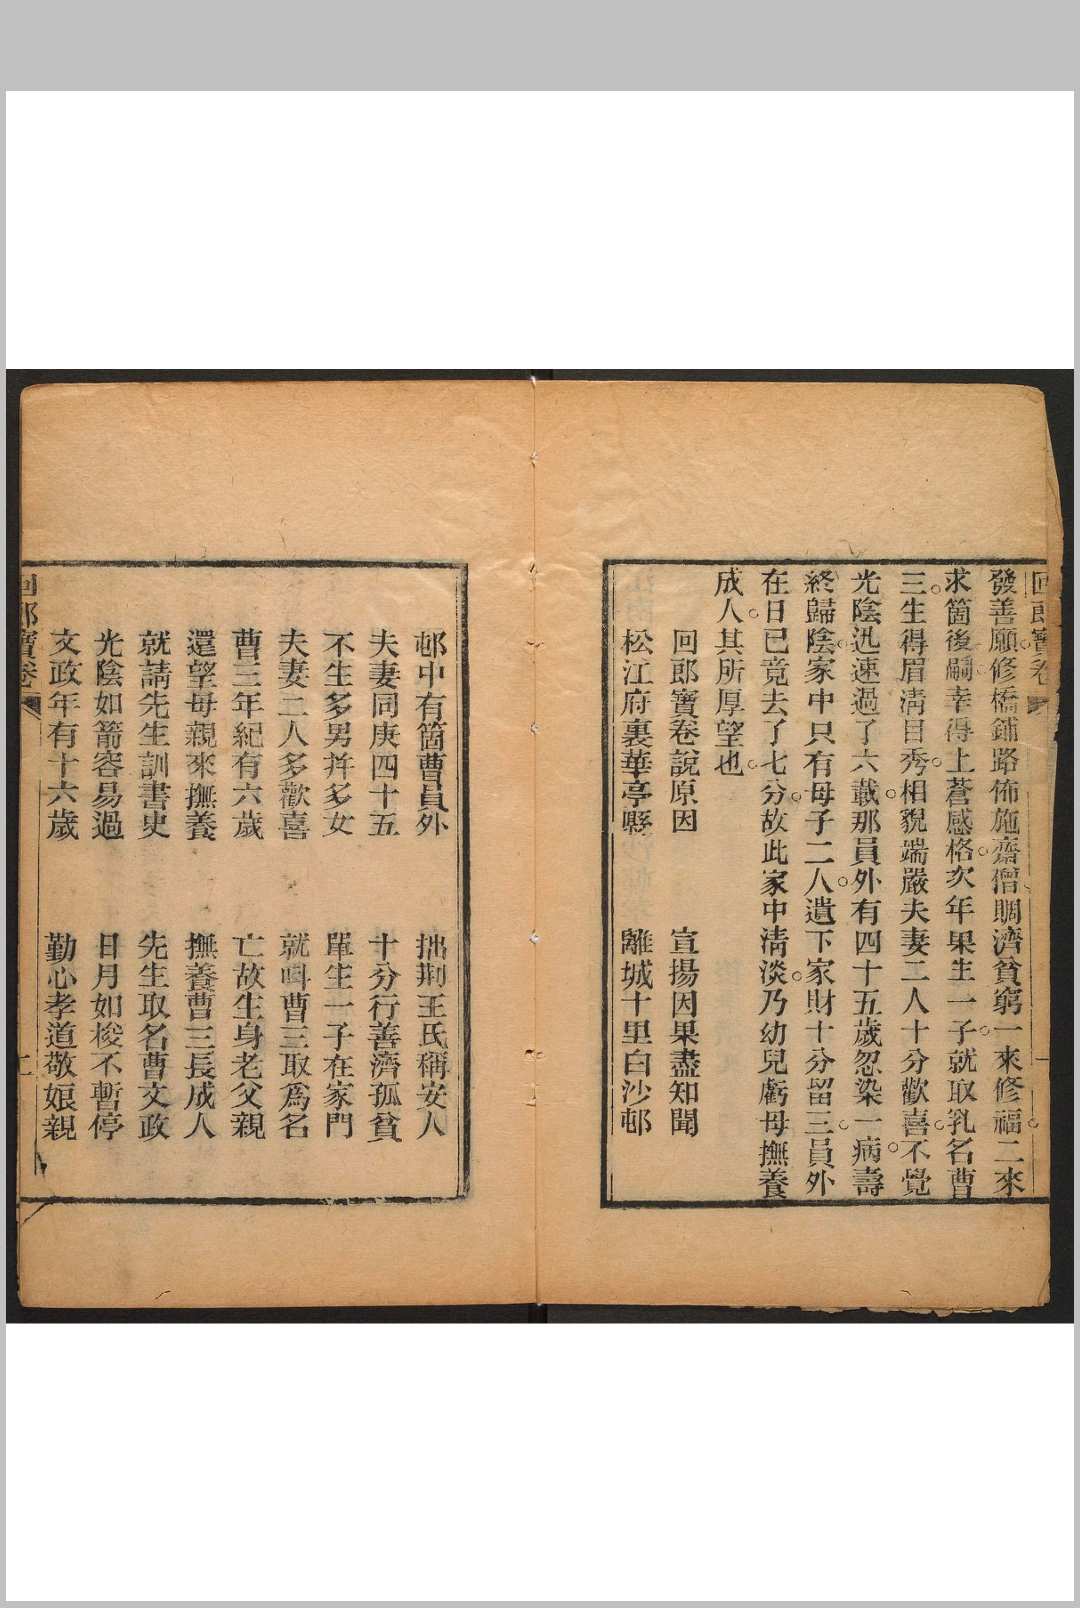 回郎寶卷
一
發善願修橋鋪路佈施齋僧賙濟貧窮一來修福二來
求箇後嗣幸得上蒼感格次年果生一子就取乳名曹
三生得眉清目秀相貌端嚴夫妻二人十分歡喜不覺
光陰迅速過了六載那員外有四十五歲忽染一病壽
終歸陰家中只有母子二人遺下家財十分留三員外
在日已竟去了七分故此家中清淡乃幼兒虧母撫養
成人其所厚望也
回郎寶卷說原因 宣揚因果盡知聞
松江府裏華亭縣 離城十里白沙邨
邨中有箇曹員外 拙荆王氏稱安人
夫妻同庚四十五 十分行善濟孤貧
不生多男并多女 單生一子在家門
夫妻二人多歡喜 就呌曹三取爲名
曹三年紀有六歲 亡故生身老父親
還望母親來撫養 撫養曹三長成人
就請先生訓書史 先生取名曹文政
光陰如箭容易過 日月如梭不暫停
文政年有十六歲 勤心孝道敬娘親
回郎寶卷
二